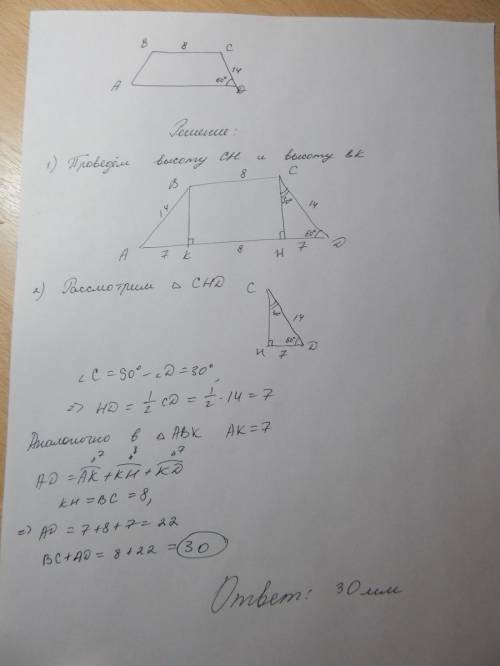 B 8 C
14
A 60° D
Решение:
1) Проведём высоту CH и высоту BK
8
B C
14 30° 14
60°
A 7 K 8 H 7 D
2) Рассмотрим △ CHD
C
30° 14
60°
H 7 D
∠C = 90° - ∠D = 30°
=> HD = 1/2 CD = 1/2 · 14 = 7
Аналогично в △ ABK AK = 7
7 8 7
AD = AK + KH + KD
KH = BC = 8,
=> AD = 7+8+7 = 22
BC + AD = 8 + 22 = 30
Ответ: 30 мм